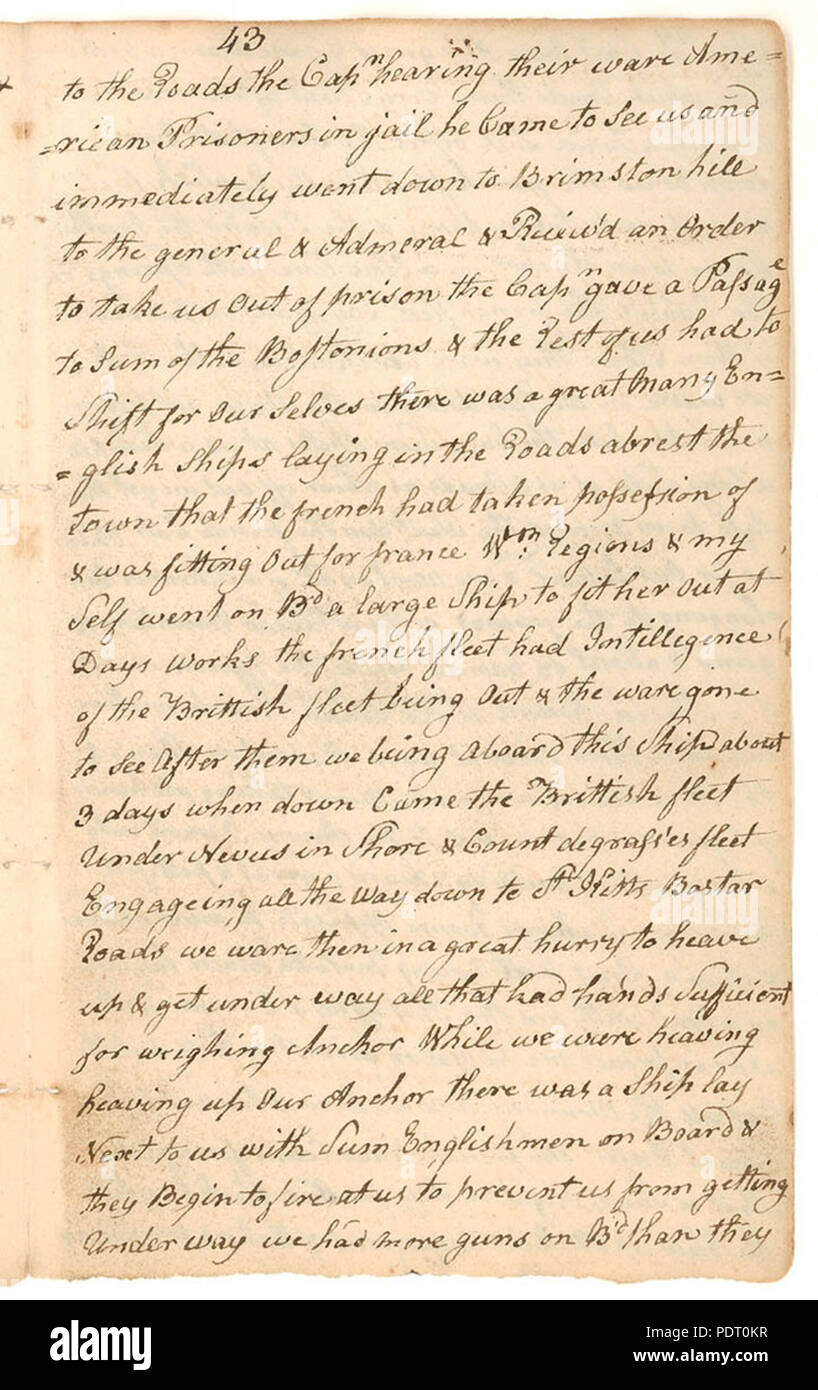 43
to the Roads the Capn hearing their ware Ame=
=rican Prisoners in jail he Came to See us and
immediately went down to Brimston hill
to the general & Admeral & Reciev'd an Order
to take us Out of prison the Capn gave a Passage
to Sum of the Bostonions & the Rest of us had to
Shift for Our Selves there was a great Many En=
=glish Ships laying in the Roads abrest the
town that the french had taken possession of
& was fitting Out for france Wm. Regions & my
Self went on Bd a large Ship to fit her Out at
Days works the french fleet had Intillegence
of the Brittish fleet being Out & the ware gone
to See After them we being aboard this Ship about
3 days when down Came the Brittish fleet
Under Nevus in Shore & Count degrasses fleet
Engageing all the Way down to St Kitts Bastar
Roads we ware then in a great hurry to heave
up & get under way all that had hands Sufficient
for weighing Anchor While we ware heaving
heaving up Our Anchor there was a Ship lay
Next to us with Sum Englishmen on Board &
they Begin to fire at us to prevent us from getting
Under way we had more guns on Bd than they
alamy
alamy
alamy
alamy
Image ID: PDT0KR
www.alamy.com